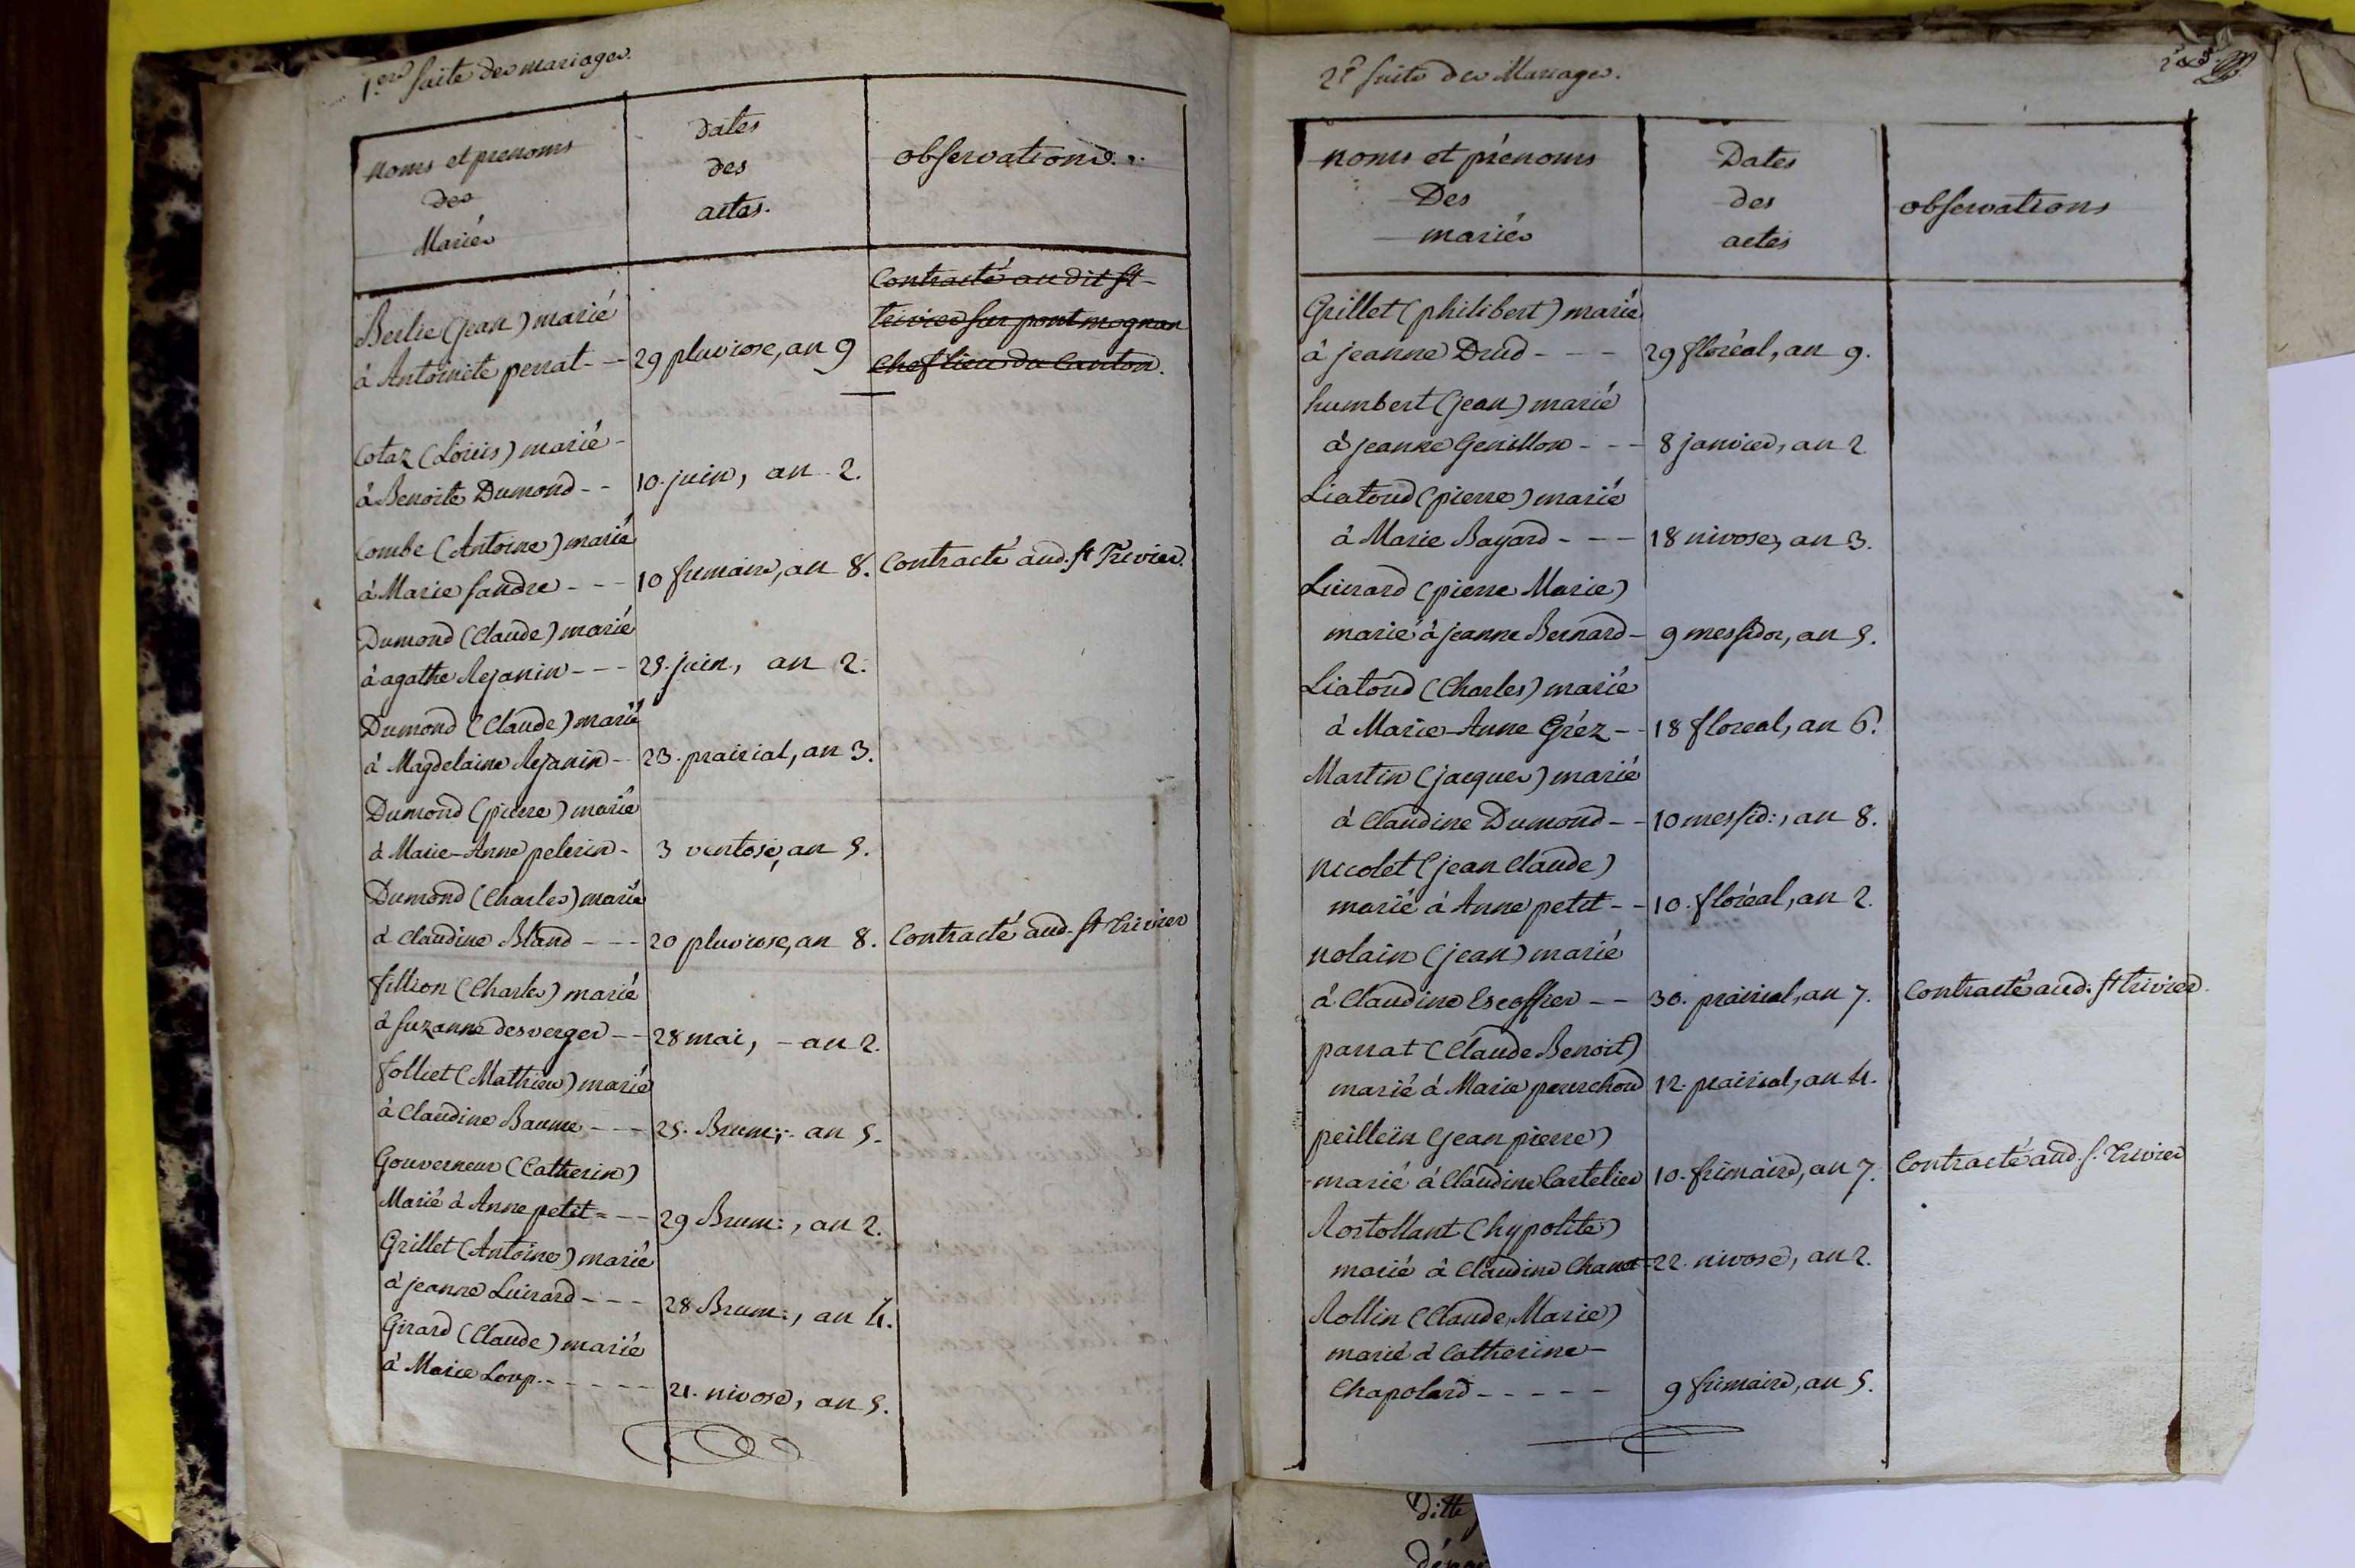 1.ere suite des mariages.
noms et prenoms
des
Mariés
Dates
des
actes.
observations.
Contracté au dit st
trivier sur pont mognan
chef lieu du Canton.
Berlie (jean) marié
à Antoinete perrat -- 29 pluviose, an 9
Cotaz (Louis) marié -
à Benoite Dumond -- 10. juin, an 2.
Combe (Antoine) marié
à Marie sandre --- 10 frimaire, an 8. Contracté aud. st Trivier.
Dumond (Claude) marié
à agathe Rejanin --- 25. juin, an 2.
Dumond (Claude) marié
à Magdelaine Rejanin -- 23. prairial, an 3.
Dumond (pierre) marié
à Marie-Anne pelerin - 3 ventose, an 5.
Dumond (Charles) marié
à Claudine Bland --- 20 pluviose, an 8. Contracté aud. st trivier
fillion (Charles) marié
à suzanne desverger -- 28 mai, - an 2.
folliet (Mathieu) marié
à Claudine Baume --- 25. Brum: - an 5.
Gouverneur (Catherin)
Marié à Anne petit = -- 29 Brum:, an 2.
Grillet (Antoine) marié
à jeanne Luirard --- 28 Brum:, an 4.
Girard (Claude) marié
à Marie Loup ----- 21. nivose, an 5.
2.e suite des Mariages.
noms et prénoms
Des
mariés
Dates
des
actes
observations
Grillet (philibert) marié
à jeanne Drud --- 29 floréal, an 9.
humbert (jean) marié
à jeanne Genillon --- 8 janvier, an 2
Liatoud (pierre) marié
à Marie Bayard --- 18 nivose, an 3.
Luirard (pierre Marie)
marié à jeanne Bernard - 9 messidor, an 5.
Liatoud (Charles) marié
à Marie-Anne Gréz -- 18 floreal, an 6.
Martin (jacques) marié
à Claudine Dumond -- 10 messid:, an 8.
Nicolet (jean Claude)
marié à Anne petit -- 10. floréal, an 2.
nolain (jean) marié
à Claudine Escoffier -- 30. prairial, an 7. Contracté aud. st trivier.
parrat (Claude Benoit)
marié à Marie pourchoud 12. prairial, an 4.
peilleïn (jean pierre)
marié à Claudine Cartelier 10. frimaire, an 7. Contracté aud. s. Trivier
Rostollant (hypolite)
marié à Claudine Chanet 22. nivose, an 2.
Rollin (Claude, Marie)
marié à Catherine -
Chapolard ----- 9 frimaire, an 5.
Ditte